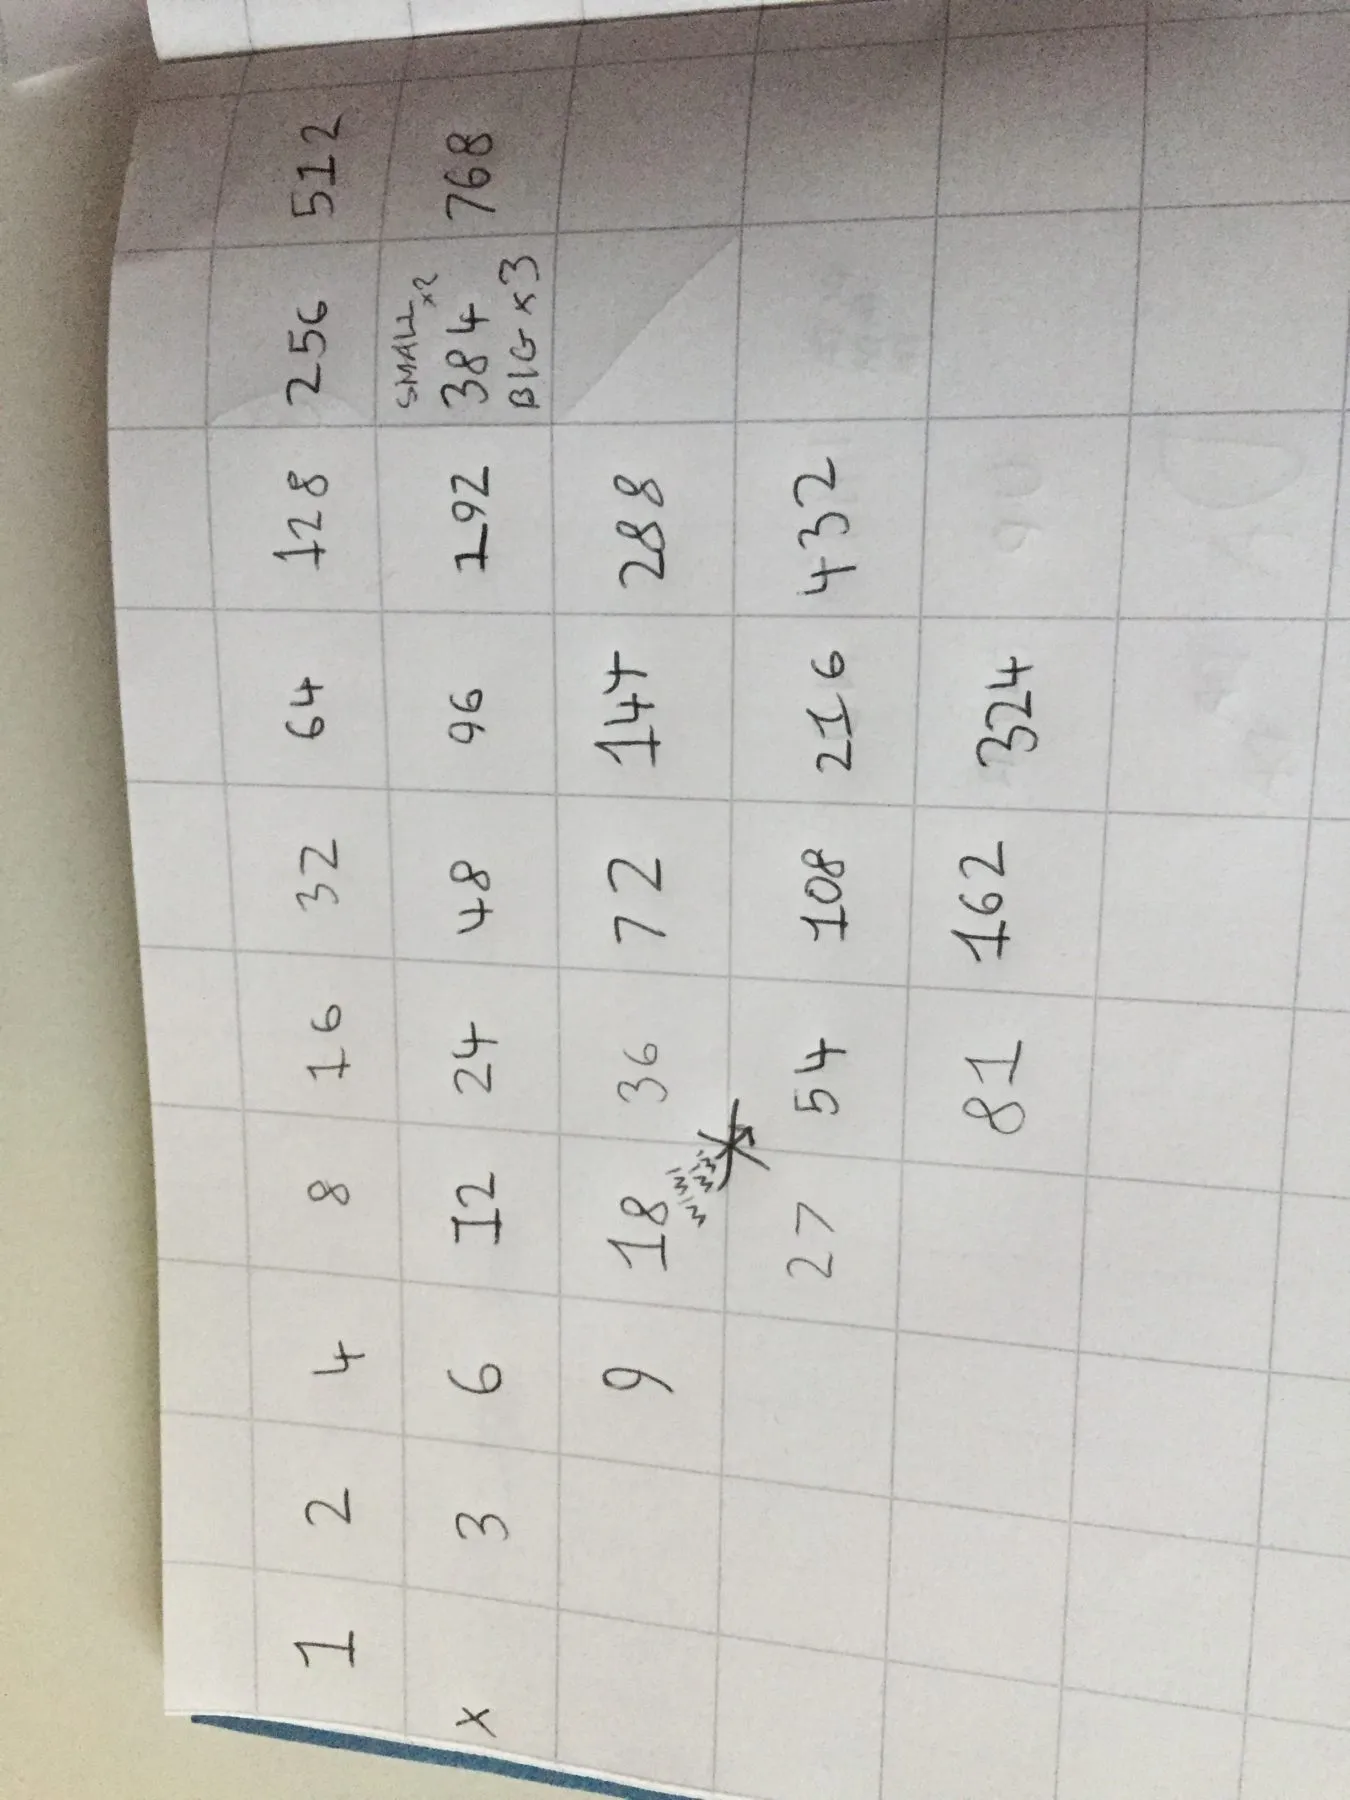 1 2 4 8 16 32 64 128 256 512
SMALL x2
x 3 6 12 24 48 96 192 384 768
BIG x3
9 18 36 72 144 288
27 54 108 216 432
81 162 324